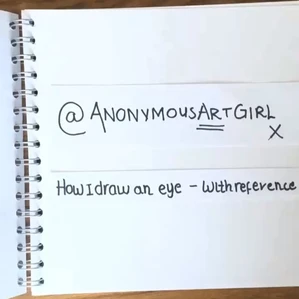 @ANONYMOUSARTGIRL
X
How I draw an eye - With reference